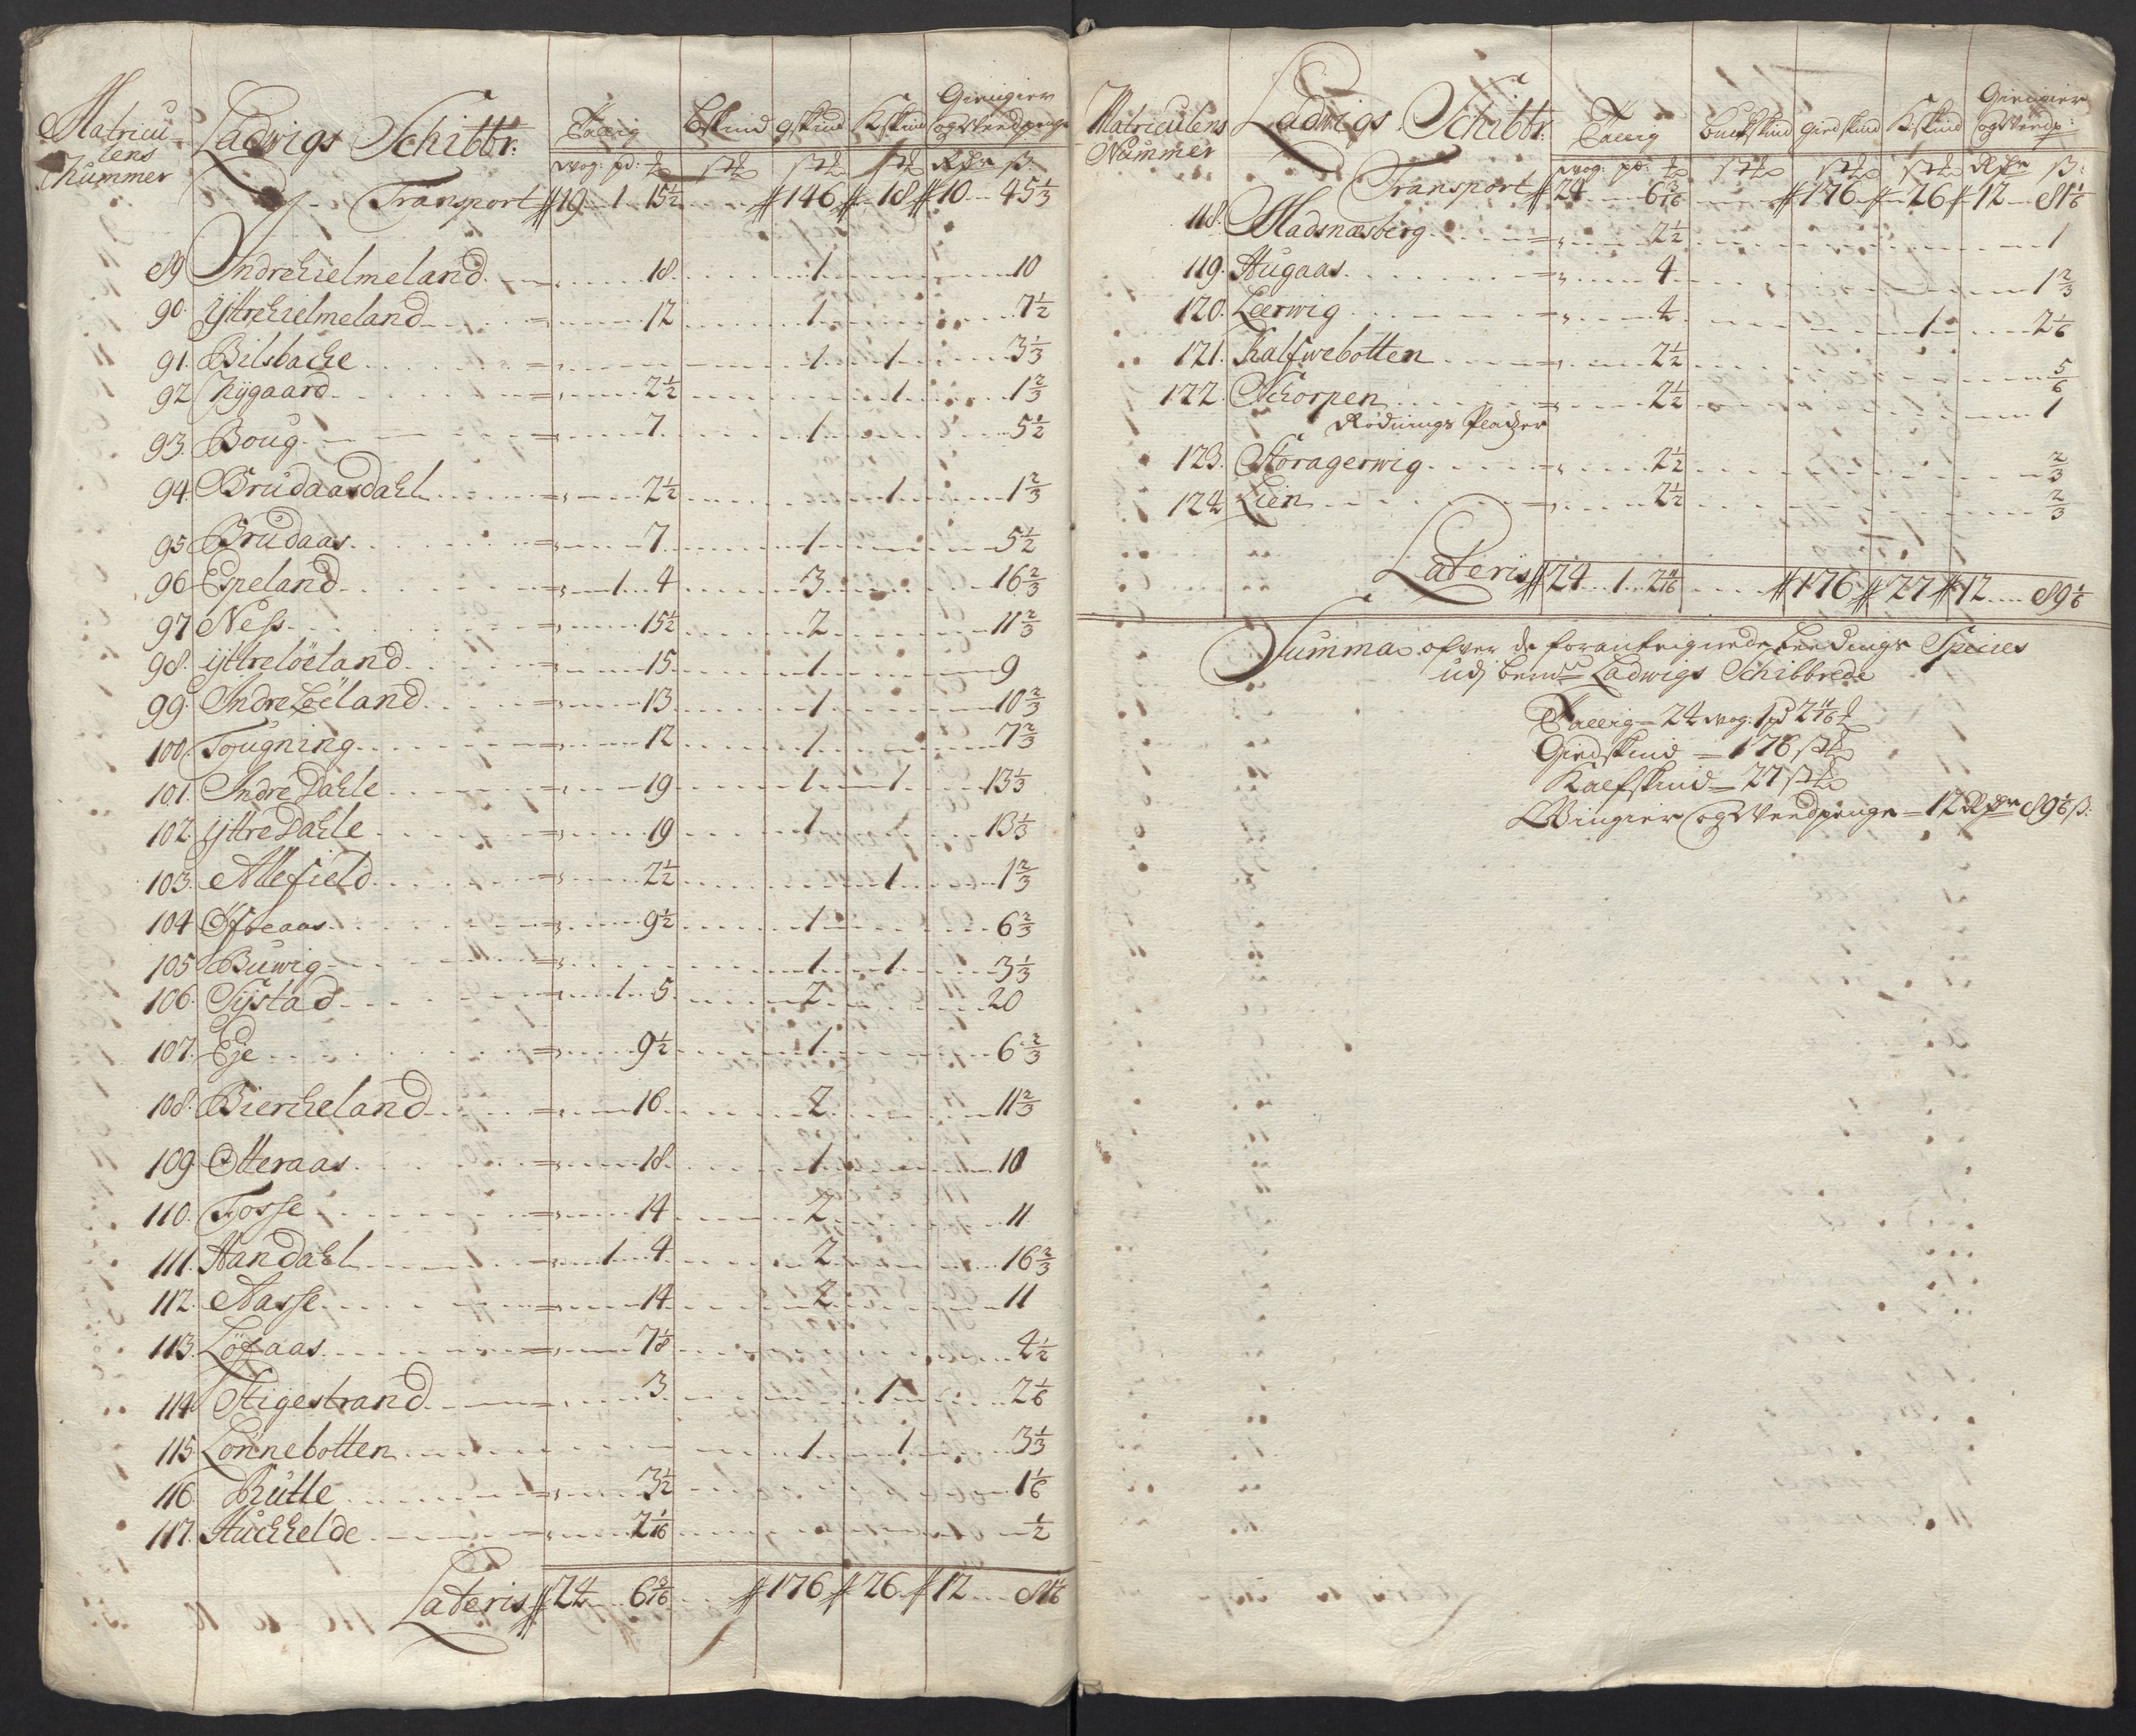 Matricu
lens
Nummer
Ladwigs Schibbr:
Tallig
Bskind
gskind
Kskind
Giengier
og Wredpenge
wog: pd: ℔
stk
stk
stk
Rdr ß
Transport 19 1 15½ 146 18 10 45⅓
89 Indrehielmeland 18 1 10
90. ÿttrehielmeland 12 1 7½
91. Bilsbache 1 1 3⅓
92 Nÿgaard 2½ 1 1⅔
93. Boug 7 1 5½
94. Brudaasdahl 2½ 1 1⅔
95 Brudaas 7 1 5½
96 Espeland 1 4 3 16⅔
97 Ness 15½ 2 11⅔
98. ÿttrelöeland 15 1 9
99 Indre Löeland 13 1 10⅔
100 Tougning 12 1 7⅔
101. Indre Dahle 19 1 1 13⅓
102. ÿttre Dahle 19 1 13⅓
103. Allefield 2½ 1 1⅔
104 Ofreaas 9½ 1 6⅔
105 Buwig 1 1 3⅓
106. Sÿstad 1 5 2 20
107. Eje 9½ 1 6⅔
108. Biercheland 16 2 11⅔
109. Otteraas 18 1 10
110. Fosse 14 2 11
111. Aandahl 1 4 2 16⅔
112. Aasse 14 2 11
113. Löfaas 7⅛ 4½
114 Stigestrand 3 1 2⅙
115. Lönnebotten 1 1 3⅓
116. Rutle 3½ 1⅙
117. Huchelde 2 1/16 ½
Lateris 24 6 3/16 176 26 12 81⅙
Matriculens
Nummer
Ladwigs Schibbr:
Tallig
Buckskind
Giedskind
Kskind
Giengier
og Wredp:
wog: pd: ℔
stk
stk
stk
Rdr ß:
Transport 24 6 3/16 176 26 12 81⅙
118. Madsnæsberg 2½ 1
119. Haugaas 4 1⅔
120. Leerwig 4 1 2⅙
121. Kalfwebotten 2½ ⅚
122. Schorpen 2½ 1
Rödnings Pladzer
123. Storagerwig 2½ ⅔
124 Lien 2½ ⅔
Lateris 24 1 2 11/16 176 27 12 89⅙
Summa ofver de foranteignede Leedings Species
udj bemte Ladwigs Schibbrede
Tallig = 24 wog: 1 pd 2 11/16 ℔
Giedskind = 176 stk
Kalfskind = 27 stk
Wingier og Wredpenge = 12 Rdr 89⅙ ß: